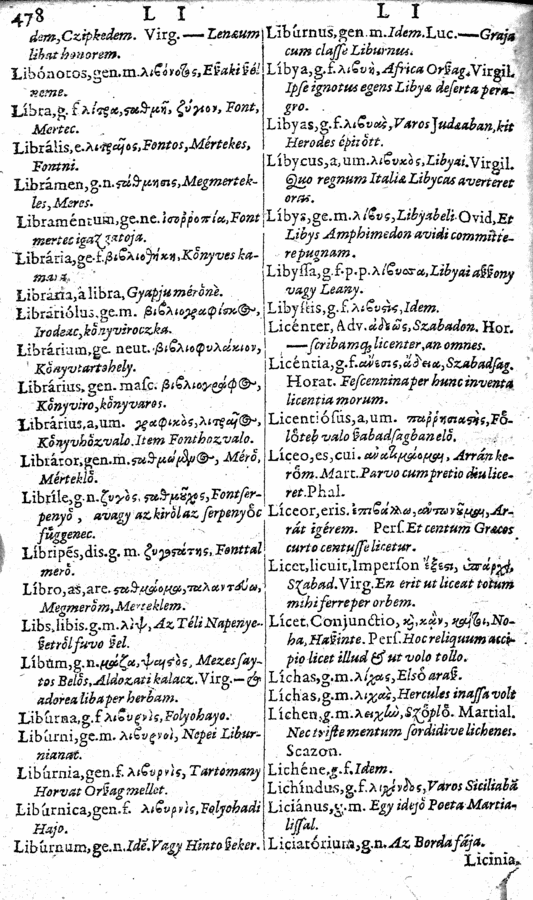 478 L I L I
dem, Czipkedem. Virg. — Lenæum
libat honorem.
Libónotos, gen.m. λιβόνοτος, Eſzaki ſzé-
neme.
Líbra, g. f. λίτρα, ϛαθμὴ, ζύγιον, Font,
Mertec.
Librális, e. λιτραῖος, Fontos, Mértekes,
Fontni.
Librámen, g.n. ϛάθμησις, Megmertek-
les, Meres.
Libraméntum, ge.ne. ἰσοῤῥοπία, Font
mertec igazgatoja.
Librária, ge.f. βιβλιοθήκη, Kőnyves ka-
mara.
Libraria, â libra, Gyapju mérőnè.
Librariólus, ge.m. βιβλιογραφίσκος,
Irodeac, kőnyviroczka.
Librárium, ge. neut. βιβλιοφυλάκιον,
Kőnyvtartohely.
Librárius, gen. maſc. βιβλιογράφος,
Kőnyviro, kőnyvaros.
Librárius, a, um. γραφικὸς, λιτραῖος,
Kőnyvhőz valo. Item Fonthoz valo.
Librátor, gen.m. ϛαθμώμενος, Mérő,
Mérteklő.
Libríle, g.n. ζυγὸς, ϛαθμοῦχος, Fontſer-
penyő, avagy az kiről az ſerpenyőc
fűggenec.
Líbripẽs, dis. g. m. ζυγοϛάτης, Fonttal
merő.
Líbro, as, are. ϛαθμάομαι, ταλαντεύω,
Megmerőm, Merteklem.
Libs, libis. g.m. λὶψ, Az Téli Napenye-
ſzetről fuvo ſzel.
Libũm, g.n. μάζα, ψαιϛὸς, Mezes ſay-
tos Belős, Aldozati kalacz. Virg. — &
adorea liba per herbam.
Libúrna, g.f. λιβυρνὶς, Folyohayo.
Libúrni, ge.m. λιβυρνοὶ, Nepei Libur-
nianat.
Libúrnia, gen.f. λιβυρνὶς, Tartomany
Horvat Orſzag mellet.
Libúrnica, gen.f. λιβυρνὶς, Folyohadi
Hajo.
Libúrnum, ge.n. Idẽ. Vagy Hinto ſzeker.
Libúrnus, gen.m. Idem. Luc. — Graja
cum claſſe Liburnus.
Líbya, g.f. λιβυὴ, Africa Orſzag. Virgil.
Ipſe ignotus egens Libyæ deſerta pera-
gro.
Libyas, g.f. λιβυὰς, Varos Judæaban, kit
Herodes épitőtt.
Líbycus, a, um. λιβυκὸς, Libyai. Virgil.
Quo regnum Italiæ Libycas averteret
oras.
Líbys, ge.m. λίβυς, Libyabeli. Ovid, Et
Libys Amphimedon avidi committe-
re pugnam.
Libyſſa, g.f. p.p. λίβυσσα, Libyai aſzſzony
vagy Leany.
Libyſtis, g.f. λιβυϛὶς, Idem.
Licénter, Adv. ἀδεῶς, Szabadon. Hor.
— ſcribamq́; licenter, an omnes.
Licéntia, g.f. ἄνεσις, ἄδεια, Szabadſag.
Horat. Feſcennina per hunc inventa
licentia morum.
Licentióſus, a, um. παῤῥησιαϛὴς, Fő-
lőteb valo ſzabadſagban elő.
Líceo, es, cui. Arrán ke-
rőm. Mart. Parvo cum pretio diu lice-
ret. Phal.
Líceor, eris. Ar-
rát igérem. Perſ. Et centum Græcos
curto centuſſe licetur.
Licet, licuit, Imperſon ἔξεϛι, ὑπάρχει,
Szabad. Virg. En erit ut liceat totum
mihi ferre per orbem.
Lícet, Conjunctio, κᾂν, καίτοι, No-
ha, Haſzinte. Perſ. Hoc reliquum acci-
pio licet illud & ut volo tollo.
Líchas, g.m. λίχας, Első araſz.
Líchas, g.m. λιχὰς, Hercules inaſſa volt
Líchen, g.m. λειχὼ, Szőplő. Martial.
Nec triſte mentum ſordidive lichenes.
Scazon.
Lichéne, g.f. Idem.
Lichíndus, g.f. λιχίνδος, Varos Siciliabã
Liciánus, g.m. Egy idejő Poeta Martia-
liſſal.
Liciatóriũm, g.n. Az Borda fája.
Licinia,